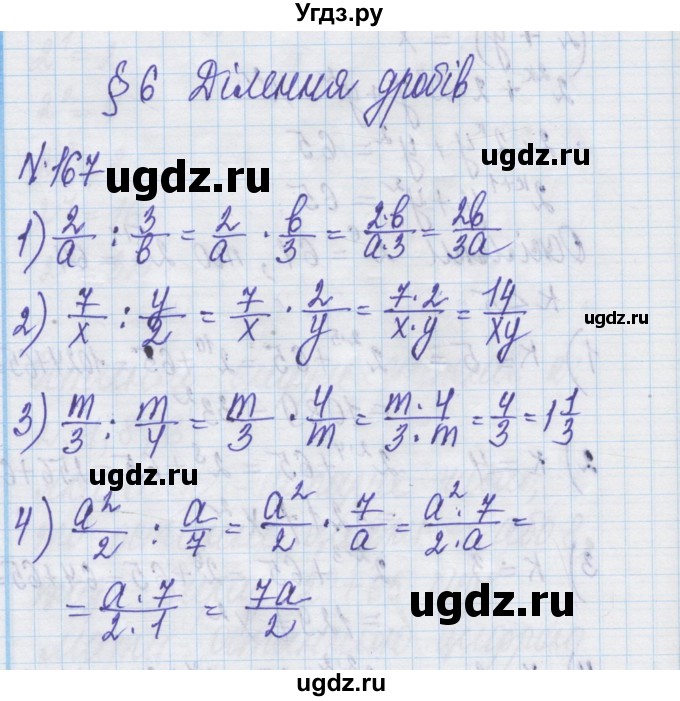 Угдз.ру
§ 6 Ділення дробів
№ 167
ugdz.ru
1) 2/a : 3/в = 2/a · в/3 = 2·в/a·3 = 2в/3a
2) 7/x : y/2 = 7/x · 2/y = 7·2/x·y = 14/xy
ugdz.ru
ugdz.ru
3) m/3 : m/4 = m/3 · 4/m = m·4/3·m = 4/3 = 1 1/3
ugdz.ru
4) a²/2 : a/7 = a²/2 · 7/a = a²·7/2·a =
= a·7/2·1 = 7a/2
ugdz.ru
ugdz.ru